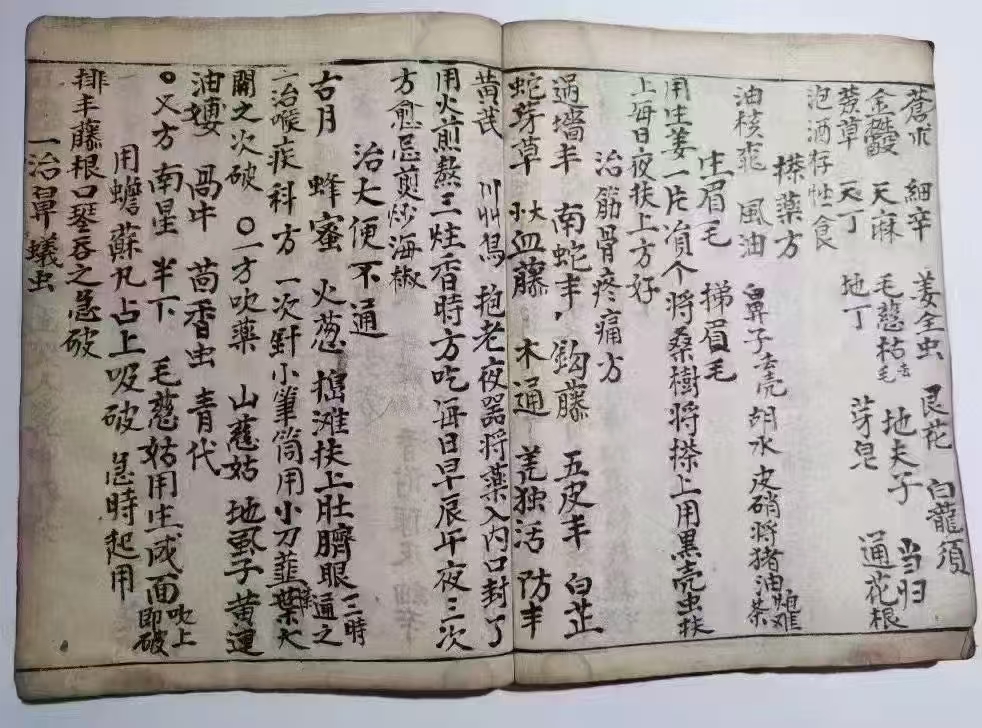 蒼朮 細辛 姜全虫 艮花 白龍須
金殼 天麻 毛慈枯去毛 地夫子 当归
劳草 天丁 地丁 芽皂 通花根
泡酒存性食
搽薬方
油核 風油 鼻子去壳 胡水 皮硝将猪油炮难茶
生眉毛 挮眉毛
用生姜一片 个将桑樹将搽上用黒壳虫扶
上每日夜扶上方好
治筋骨疼痛方
過墻丰 南蛇丰 鈎藤 五皮丰 白芷
蛇芽草 大小血藤 木通 羌独活 防丰
黄芪 川艸烏 抱老夜器将薬入内口封了
用火煎熬三炷香時方吃每日早辰午夜三次
方愈忌煎炒海椒
治大便不通
古月 蜂蜜 火葱 搗滩扶上肚臍眼一二時通之
一治喉疾科方 一次針小筆筒用小刀韮葉大
開之次破 〇一方吹薬 山慈姑 地虱子 黄連
油 咼牛 茴香虫 青代
〇又方 南星 半下 毛慈姑用生成面吹上即破
用蟾蘇丸占上吸破 急時起用
排丰藤根口 吞之急破
一治鼻蟻虫